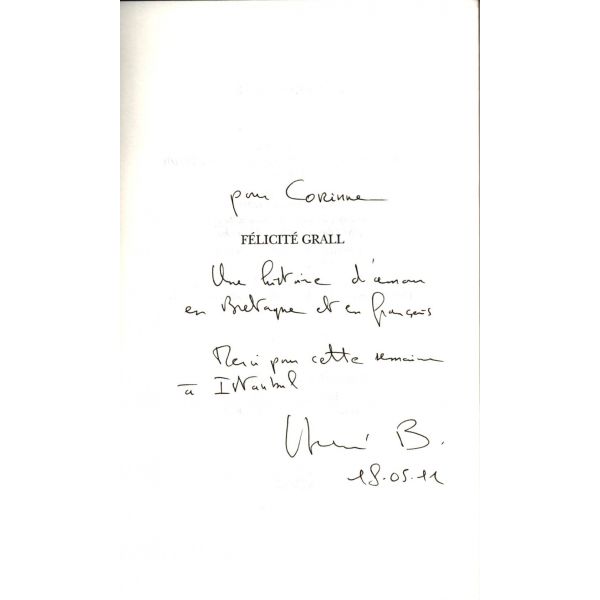 pour Corinne
FÉLICITÉ GRALL
Une histoire d'amour
en Bretagne et en français
Merci pour cette semaine
à Istanbul
B.
18.05.11